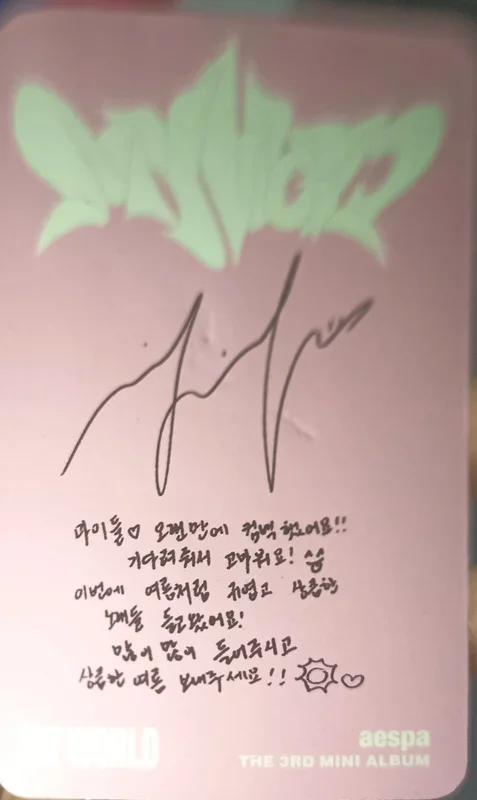 마이들♡ 오랜만에 컴백 했어요!!
기다려줘서 고마워요!
이번에 여름처럼 귀엽고 상큼한
노래들 들고왔어요!
많이 많이 들어주시고
상큼한 여름 보내주세요!!
MY WORLD
aespa
THE 3RD MINI ALBUM